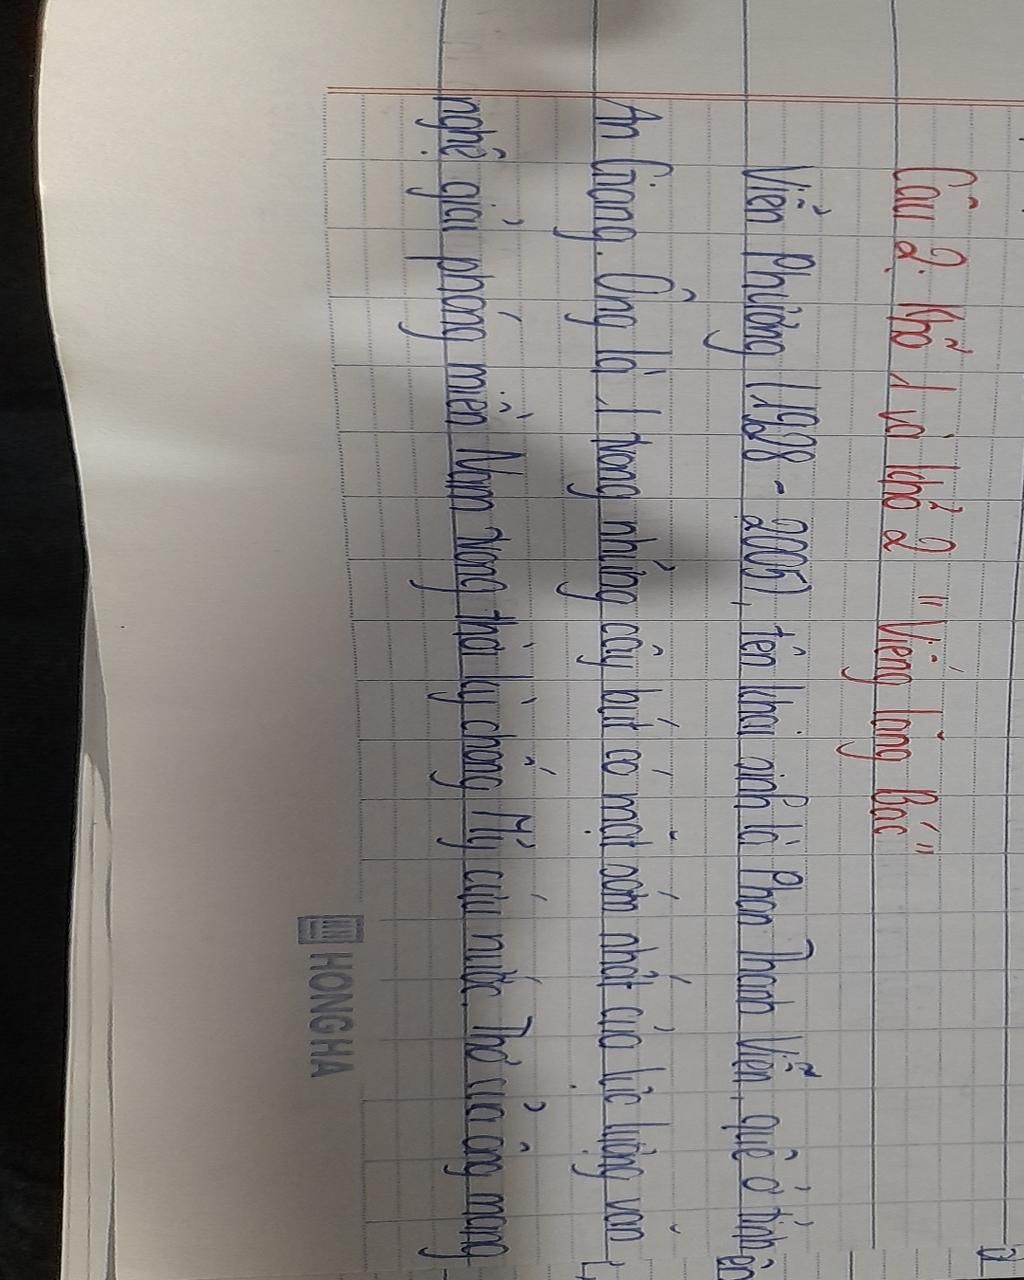 Câu 2: Khổ 1 và khổ 2 "Viếng lăng Bác"
Viễn Phương (1928 - 2005), tên khai sinh là Phan Thanh Viễn, quê ở tỉnh
An Giang. Ông là 1 trong những cây bút có mặt sớm nhất của lực lượng văn
nghệ giải phóng miền Nam trong thời kỳ chống Mỹ cứu nước. Thơ của ông mang
HONG HA